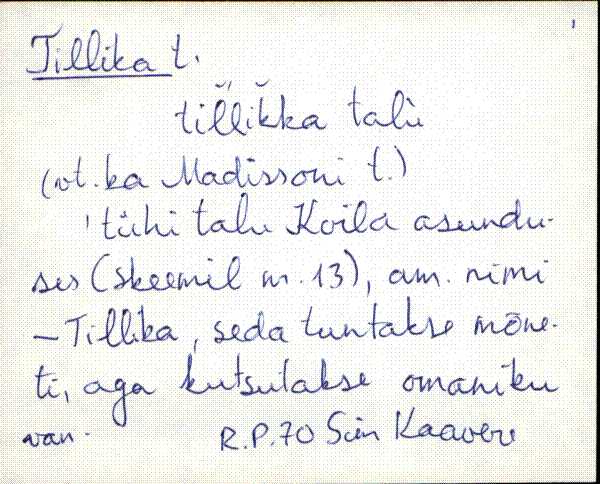 Tillika t.
tillikka talù
(vt. ka Madissoni t.)
'tühi talu Koila asundu-
ses (skeemil nr. 13), am. nimi
– Tillika, seda tuntakse mõne-
ti, aga kutsutakse omaniku
R.P.70 Siin Kaavere